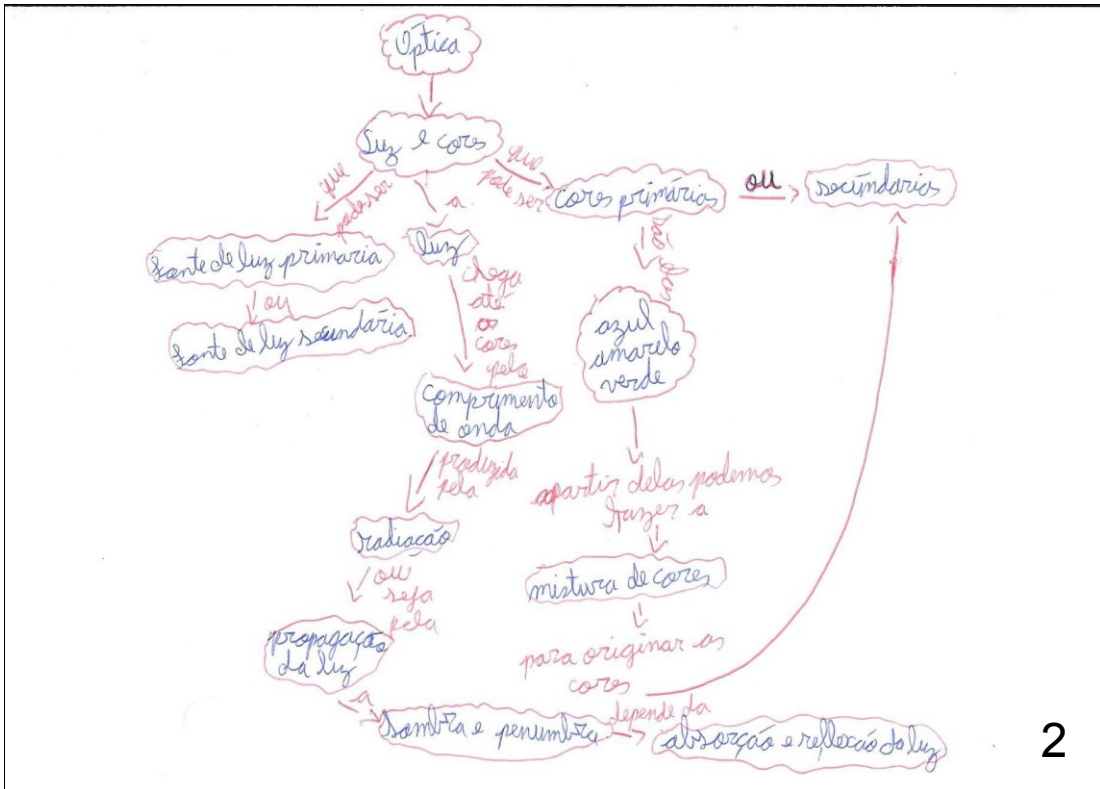 Óptica
Luz e cores
que
pode ser
a
que
pode ser
cores primárias
ou
secúndarias
Fonte de luz primaria
ou
Fonte de luz secundária
luz
chega
até
as
cores
pela
comprimento
de onda
produzida
pela
radiacão
ou
seja
pela
propagação
da luz
a
Sombra e penumbra
depende da
absorção e reflexão da luz
são elas
azul
amarelo
verde
apartir delas podemos
fazer a
mistura de cores
para originar as
cores
2